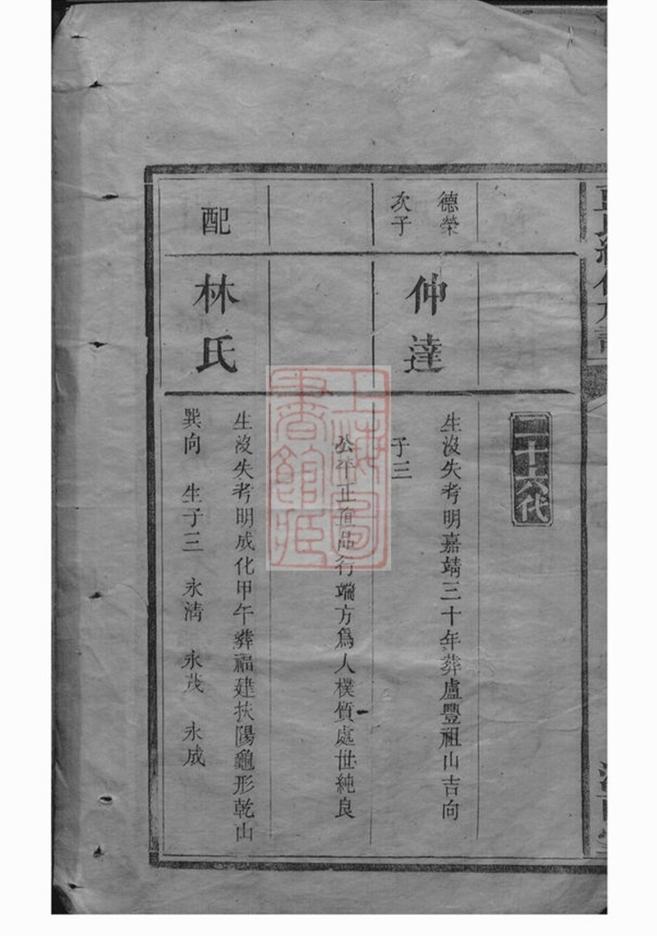 十六代
德榮
次子
仲達
生沒失考明嘉靖三十年葬盧豐祖山吉向
子三
公平正直品行端方爲人樸質處世純良
配
林氏
生沒失考明成化甲午葬福建扶陽龜形乾山
巽向 生子三 永清 永茂 永威
上海圖書館藏